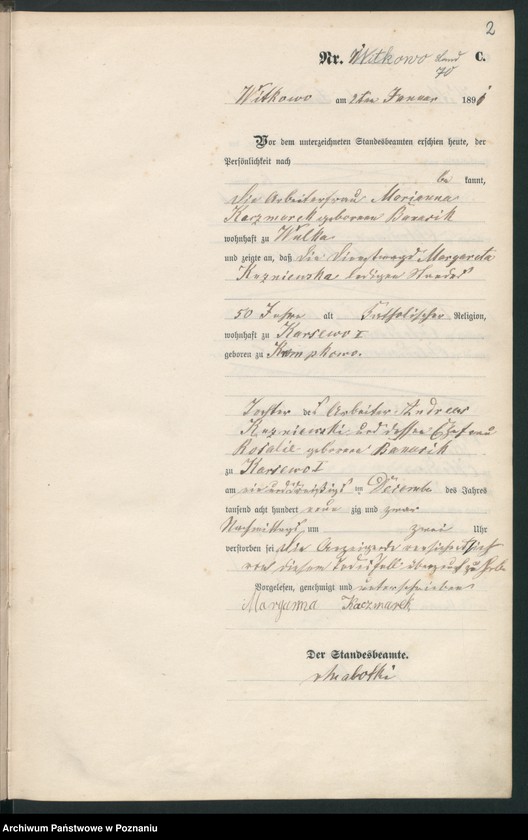 2
Nr. Witkowo Land C.
70
Witkowo am 2ten Januar 1891
Vor dem unterzeichneten Standesbeamten erschien heute, der
Persönlichkeit nach
be kannt,
die Arbeiterfrau Marianna
Kaczmarek geborene Banasik
wohnhaft zu Wulka
und zeigte an, daß die Dienstmagd Margareta
Kuzniewska ledigen Standes
50 Jahre alt katholischer Religion,
wohnhaft zu Karsewo I
geboren zu
Tochter des Arbeiter Andreas
Kuzniewski und dessen Ehefrau
Rosalie geborene Banasik
zu Karsewo I
am ein und dreißigsten Dezember des Jahres
tausend acht hundert neun zig und zwar
Nachmittags um zwei Uhr
verstorben sei, die Anzeigende versichert sich
von diesem Todesfall überzeugt zu haben
Vorgelesen, genehmigt und unterschrieben
Maryanna Kaczmarek
Der Standesbeamte.
Archiwum Państwowe w Poznaniu